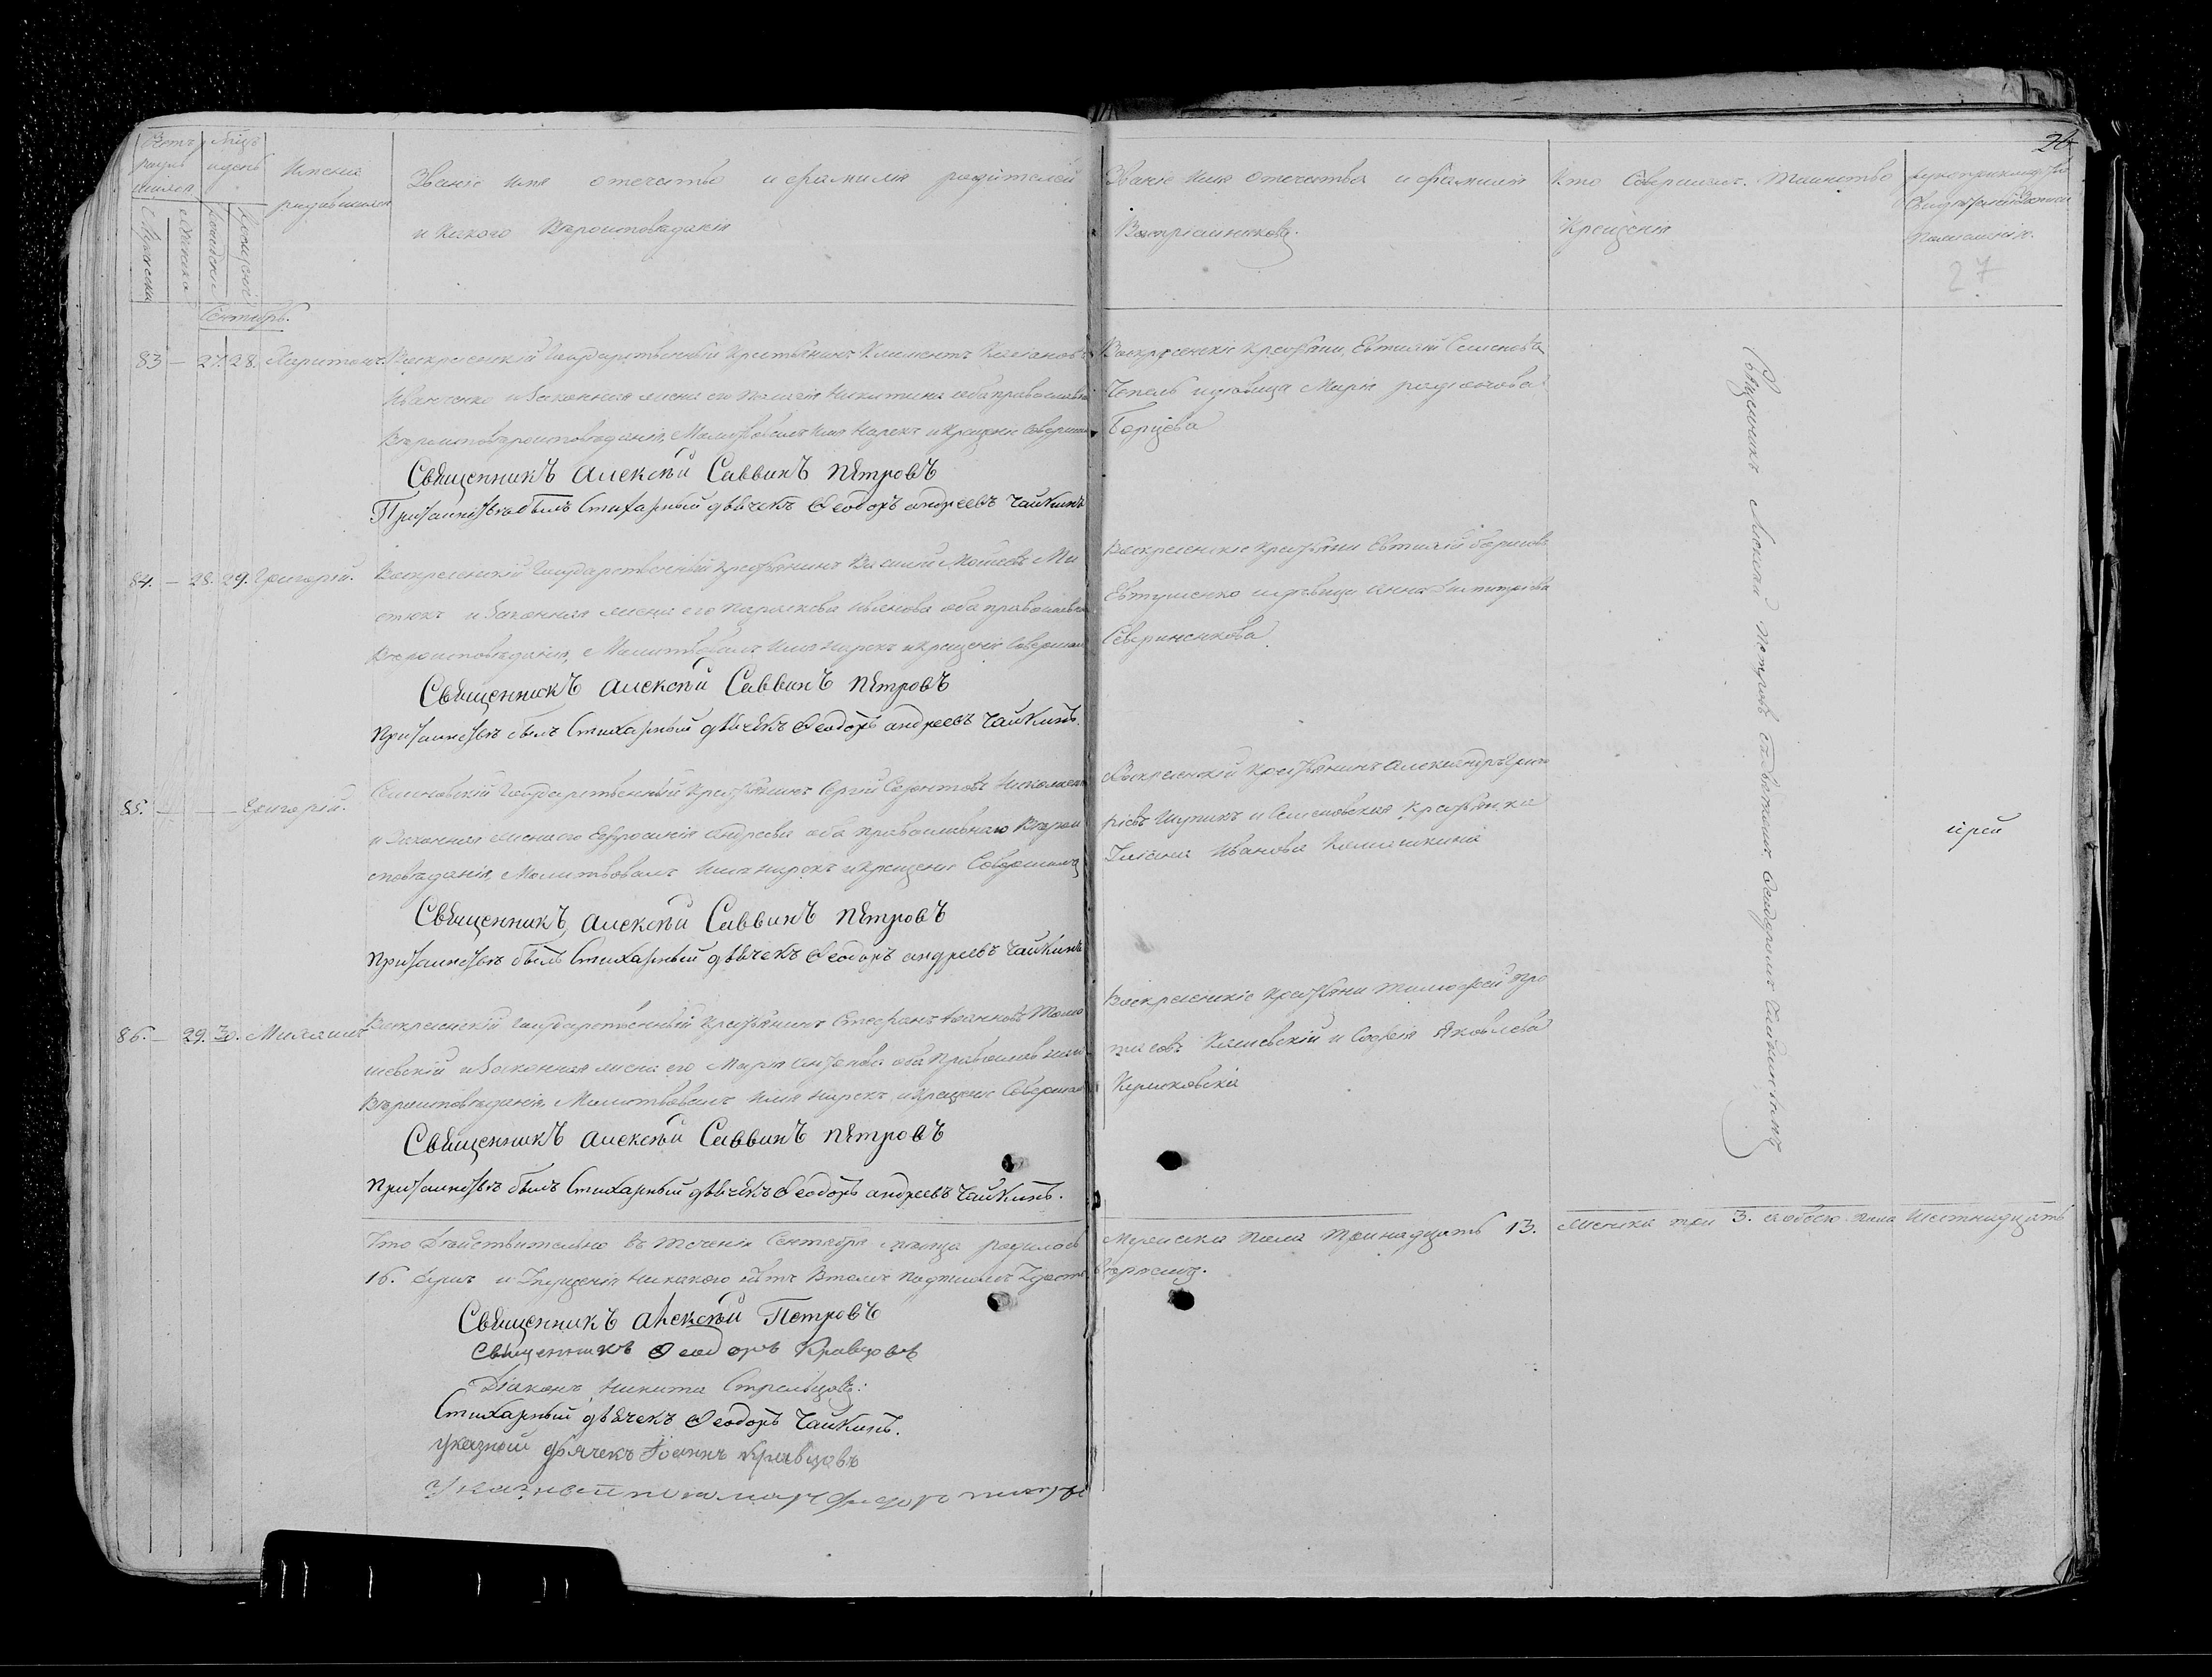 26
27
Счетъ родившихся
Мѣсяцъ и день
Имена родившихся
Званіе имя отечество и фамилія родителей
и какого вѣроисповѣданія
Званіе имя отечество и фамилія
Воспріемниковъ.
Кто совершалъ таинство
крещенія
Сентябрь.
83 — 27. 28. Харитонъ.
Воскресенскій Государственный крестьянинъ Климентъ
Иванченко и законная жена его Пелагія Никитина оба православнаго
Молитвовалъ имя нарекъ и крещеніе совершилъ
Священникъ Алексѣй Саввинъ Петровъ
При таинствѣ былъ Стихарный дьячекъ Феодоръ Андреевъ Чайкинъ
Воскресенскіе крестьяне Евтихій Семеновъ
Чепель и дѣвица Марія Родіонова
Борцева
84. — 28. 29. Григорій.
Воскресенскій Государственный крестьянинъ Василій Моисеевъ Ми
стюкъ и законная жена его Параскева Иванова оба православнаго
вѣроисповѣданія, Молитвовалъ имя нарекъ и крещеніе совершилъ
Священникъ Алексѣй Саввинъ Петровъ
При таинствѣ былъ Стихарный дьячекъ Феодоръ Андреевъ Чайкинъ.
Воскресенскіе крестьяне Евтихій Борисовъ
Евтушенко и дѣвица Анна Димитріева
Севериненкова
85. — — — Григорій.
Семеновскій Государственный крестьянинъ Сергій
и законная жена его Евфросинія Андреева оба православнаго вѣрои
сповѣданія, Молитвовалъ имя нарекъ и крещеніе совершилъ
Священникъ Алексѣй Саввинъ Петровъ
При таинствѣ былъ Стихарный дьячекъ Феодоръ Андреевъ Чайкинъ
Воскресенскій крестьянинъ Александръ Григо
ріевъ и Семеновская крестьянка
Иванова
іерей
86. — 29. 30. Михаилъ
Воскресенскій Государственный крестьянинъ Стефанъ
шевскій и законная жена его Марія оба православнаго
вѣроисповѣданія, Молитвовалъ имя нарекъ и крещеніе совершилъ
Священникъ Алексѣй Саввинъ Петровъ
При таинствѣ былъ Стихарный дьячекъ Феодоръ Андреевъ Чайкинъ.
Воскресенскіе крестьяне Тимофей Про
тасовъ и Софія Яковлева
Священникъ Алексѣй Петровъ съ дьячкомъ Феодоромъ Чайкинымъ
Что дѣйствительно въ теченіи Сентября мѣсяца родилось
Мужеска пола тринадцать 13. женска три 3. а обоего пола шестнадцать
16. душъ и никакого нѣтъ въ томъ подписомъ удосто
вѣряемъ.
Священникъ Алексѣй Петровъ
Священникъ Феодоръ Кравцовъ
Діаконъ Никита Стрельцовъ:
Стихарный дьячекъ Феодоръ Чайкинъ.
Указной дьячекъ Іоаннъ Кравцовъ
Указной пономарь